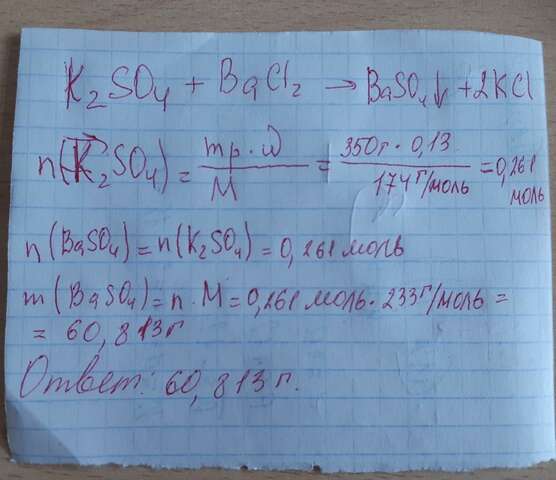 K₂SO₄ + BaCl₂ → BaSO₄↓ + 2KCl
n(K₂SO₄) = mр·ω / M = 350г · 0,13 / 174 г/моль = 0,261 моль
n(BaSO₄) = n(K₂SO₄) = 0,261 моль
m(BaSO₄) = n · M = 0,261 моль · 233 г/моль =
= 60,813г
Ответ: 60,813 г.